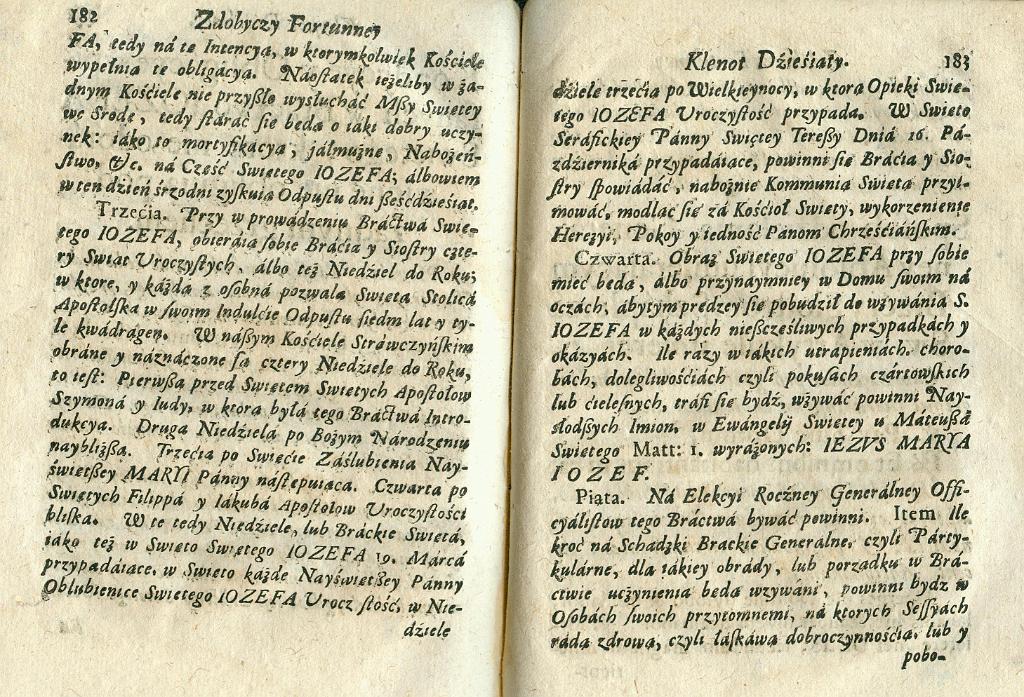 182 Zdobyczy Fortunney
FA, tedy ná tę Intencyą, w ktorymkolwiek Kościele
wypełnią tę obligácyą. Náostatek ieżeliby w żá-
dnym Kościele nie przyßło wysłucháć Mßy Swiętey
we Srodę, tedy stáráć się będą o iáki dobry uczy-
nek: iáko to mortyfikácya, jáłmużnę, Nabożeń-
stwo, &c. ná Cześć Swiętego IOZEFA; álbowiem
w ten dzień srzodni zyskuią Odpustu dni ßeśćdźieśiąt.
Trzećia. Przy w prowádzeniu Bráctwá Swię-
tego IOZEFA, obieráią sobie Bráćia y Siostry czte-
ry Swiąt Uroczystych, álbo też Niedźiel do Roku;
w ktore, y káżdą z osobná pozwala Swięta Stolicá
Apostolska w swoim Indulcie Odpustu siedm lat y ty-
le kwádrágen. W nászym Kościele Strowczyńskim
obráne y náznáczone są cztery Niedźiele do Roku,
to iest: Pierwßa przed Swiętem Swiętych Apostołow
Szymoná y Iudy, w ktorą byłá tego Bráctwá Intro-
dukcya. Druga Niedźielá po Bożym Národzeniu
naybliżßa. Trzećia po Swięcie Záślubienia Nay-
świętßey MARYI Pánny następuiąca. Czwarta po
Swiętych Filippá y Iakubá Apostołow Uroczystości
bliska. W te tedy Niedźiele, lub Bráckie Swiętá,
iáko też w Swięto Swiętego IOZEFA 19. Marcá
przypadáiące, w Swięto káżde Nayświętßey Pánny
Oblubienice Swiętego IOZEFA Urocz stość, w Nie-
dźiele
Klenot Dźieśiąty. 183
dźielę trzecią po Wielkieynocy, w ktorą Opieki Swię-
tego IOZEFA Uroczystość przypada. W Swięto
Seráfickiey Pánny Swiętey Teressy Dniá 16. Pá-
zdźierniká przypadáiące, powinni się Bráćia y Sio-
stry spowiádáć, nabożnie Kommunią Swiętą przyi-
mowáć, modląc się zá Kościoł Swięty, wykorzenienie
Herezyi, Pokoy y iedność Pánom Chrześćiáńskim.
Czwarta. Obraz Swiętego IOZEFA przy sobie
mieć będą, álbo przynaymniey w Domu swoim ná
oczách, ábytym prędzey się pobudźił do wzywánia S.
IOZEFA w káżdych nießczęśliwych przypadkách y
okázyách. Ile rázy w iákich utrapieniách, choro-
bách, dolegliwościách czyli pokusách czártowskich
lub ćielesnych, tráfi się bydź, wzywáć powinni Nay-
słodßych Imion, w Ewángelij Swiętey u Máteußá
Swiętego Matt: 1. wyráżonych: IEZVS MARYA
IOZEF.
Piąta. Ná Elekcyi Roczney Generálney Offi-
cyálistow tego Bráctwá bywáć powinni. Item Ile
kroć ná Schadzki Brackie Generalne, czyli Párty-
kulárne, dla iákiey obrády, lub porządku w Brá-
ctwie uczynienia będą wzywáni, powinni bydź w
Osobách swoich przytomnemi, ná ktorych Sessyách
rádą zdrową, czyli łáskáwą dobroczynnośćią, lub y
pobo-